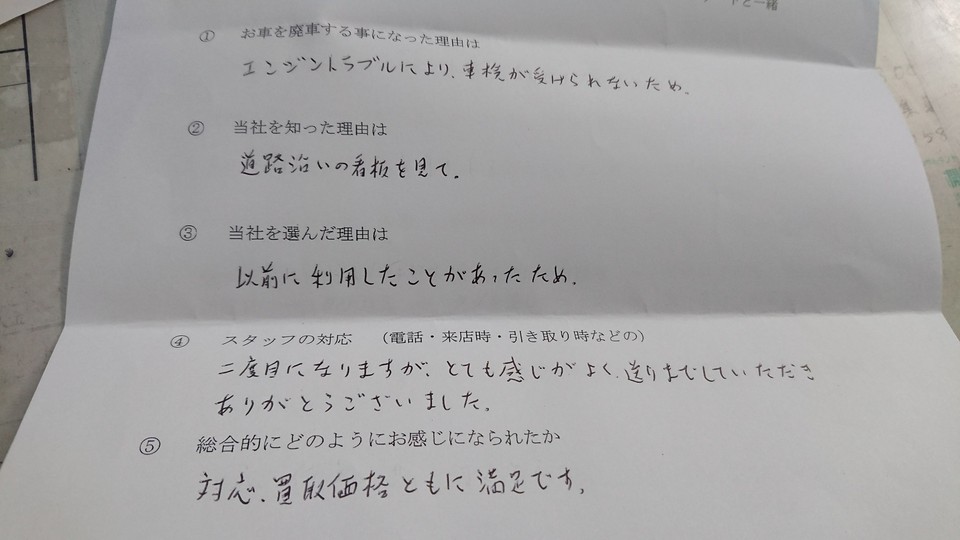 と一緒
① お車を廃車する事になった理由は
エンジントラブルにより、車検が受けられないため。
② 当社を知った理由は
道路沿いの看板を見て。
③ 当社を選んだ理由は
以前に利用したことがあったため。
④ スタッフの対応 （電話・来店時・引き取り時などの）
二度目になりますが、とても感じがよく、送りまでしていただき
ありがとうございました。
⑤ 総合的にどのようにお感じになられたか
対応、買取価格ともに満足です。